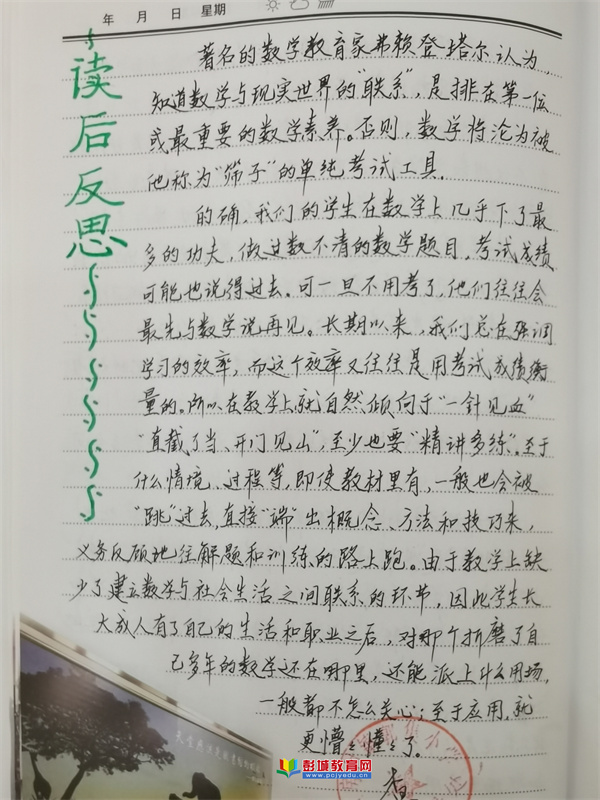 年 月 日 星期
读后反思
著名的数学教育家弗赖登塔尔认为，
知道数学与现实世界的“联系”，是排在第一位
或最重要的数学素养。否则，数学将沦为被
他称为“筛子”的单纯考试工具.
的确，我们的学生在数学上几乎下了最
多的功夫，做过数不清的数学题目，考试成绩
可能也说得过去。可一旦不用考了，他们往往会
最先与数学说再见。长期以来，我们总在强调
学习的效率，而这个效率又往往是用考试成绩衡
量的。所以在教学上就自然倾向于“一针见血”
“直截了当、开门见山”，至少也要“精讲多练”。至于
什么情境、过程等，即使教材里有，一般也会被
“跳”过去，直接“端”出概念、方法和技巧来，
义务反顾地往解题和训练的路上跑。由于教学上缺
少了建立数学与社会生活之间联系的环节，因此学生长
大成人有了自己的生活和职业之后，对那个折磨了自
己多年的数学还在哪里，还能派上什么用场，
一般都不怎么关心；至于应用，就
更懵懵懂懂了。
彭城教育网
www.pcjyedu.cn